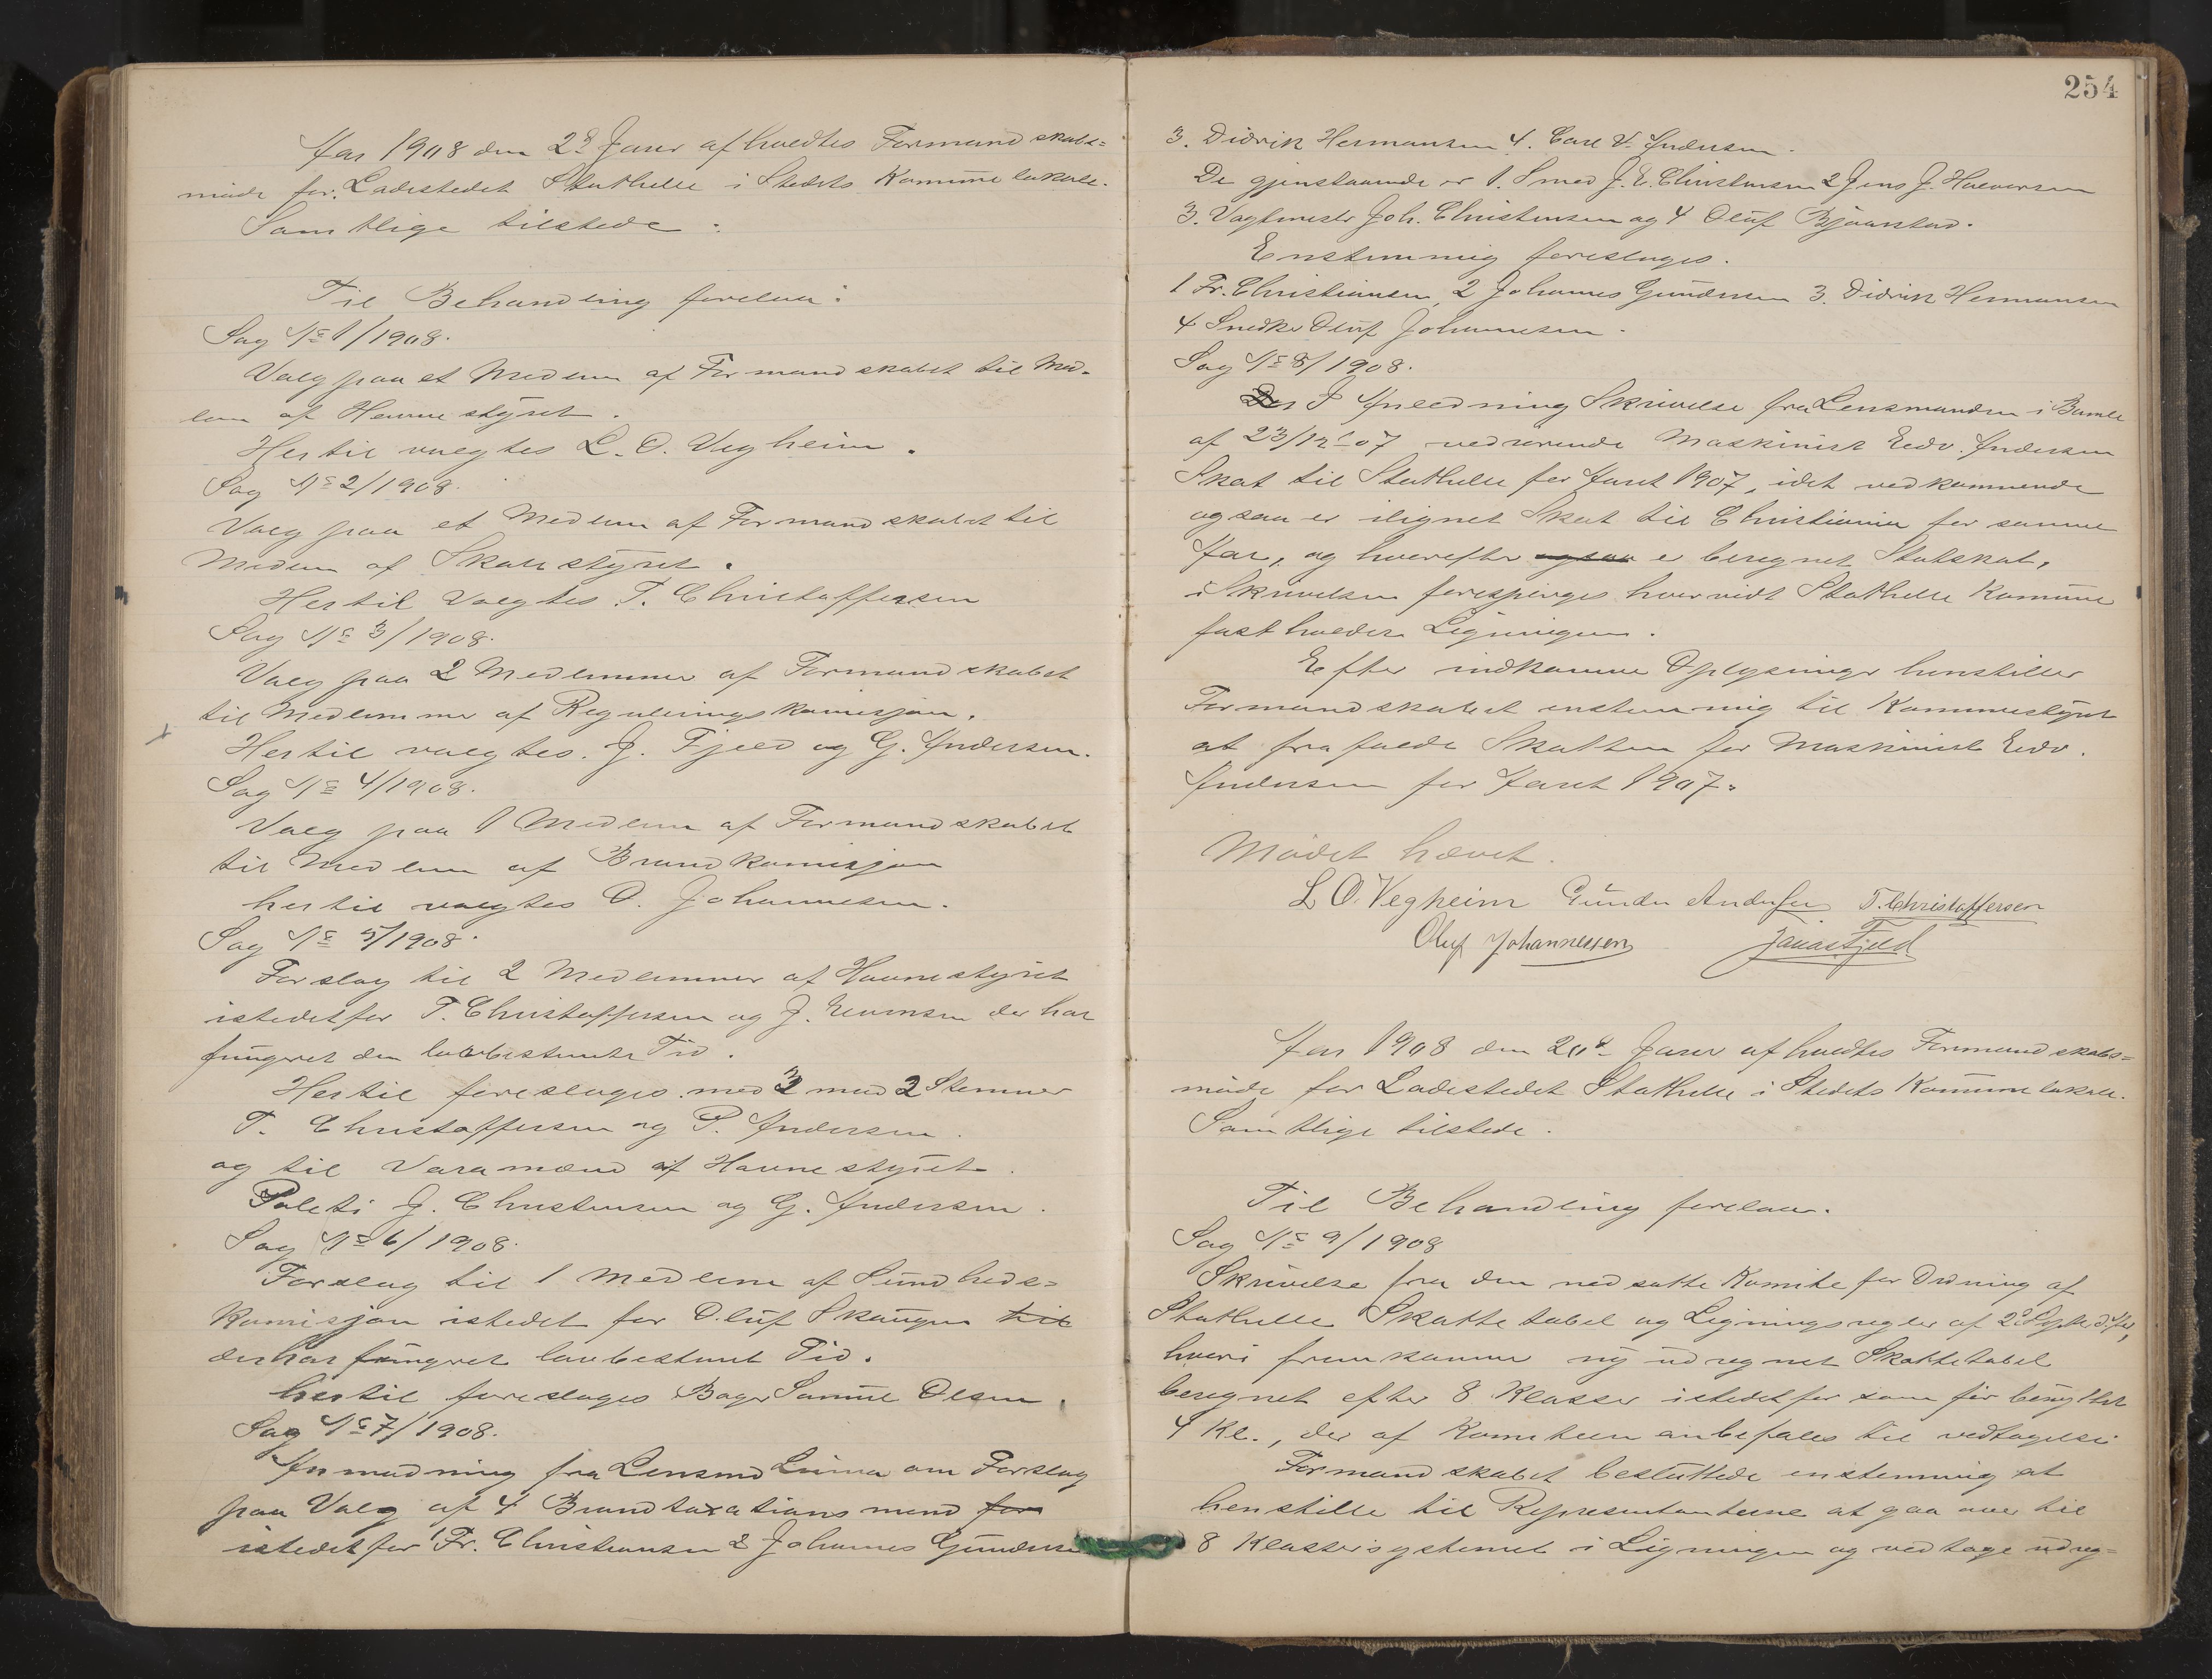 Aar 1908 den 2den Januar afholdtes Formandskabs=
møde for Ladestedet Stathelle i Stedets Komunelokale.
Samtlige tilstede:
Til Behandling forelaa:
Sag No 1/1908.
Valg paa et Medlem af Formandskabet til Med-
lem af Havnestyret.
Hertil valgtes L. O. Vegheim.
Sag No 2/1908.
Valg paa et Medlem af Formandskabet til
Medlem af Skolestyret.
Hertil Valgtes T. Christoffersen
Sag No 3/1908.
Valg paa 2 Medlemmer af Formandskabet
til Medlemmer af Reguleringskomisjon.
Hertil valgtes. J. Fjeld og G. Andersen.
Sag No 4/1908.
Valg paa 1 Medlem af Formandskabet
til Medlem af Brandkomisjon
hertil valgtes O. Johannesen.
Sag No 5/1908.
Forslag til 2 Medlemmer af Havnestyret
istedetfor T. Christoffersen og J. der har
fungeret den lovbestemte Tid.
Hertil foresloges med 3 mod 2 Stemmer
T. Christoffersen og P. Andersen.
og til Varamænd af Havnestyret.
Politi J. Christensen og G. Andersen.
Sag No 6/1908.
Forslag til 1 Medlem af Sundheds=
Komisjon istedet for Oluf Skaugen til
der har fungeret lovbestemt Tid.
hertil foresloges Bager Samuel Olsen.
Sag No 7/1908.
Anmodning fra Lensmd Linna om Forslag
paa Valg af 4 Brandtaxationsmend for
istedetfor 1 Fr. Christiansen 2 Johannes Gundersen
254
3. Didrik Hermansen 4. Carl V. Andersen.
De gjenstaaende er 1. Smed J. E. Christensen 2 Jens J. Halvorsen
3. Vagtmestr Joh. Christensen og 4 Oluf Bjaarstad.
Enstemmig foresloges.
1 Fr. Christiansen, 2 Johannes Gundersen 3. Didrik Hermansen
4 Snedker Oluf Johannesen.
Sag No 8/1908.
Der I Anledning Skrivelse fra Lensmanden i Bamle
af 23/12 07 vedrørende Maskinist Edv. Andersen
Skat til Stathelle for Aaret 1907, idet vedkommende
ogsaa er ilignet Skat til Christiania for samme
Aar, og hvorefter ogsaa er beregnet Statskat,
i Skrivelsen forespørges hvorvidt Stathelle Komune
fastholder Ligningen.
Efter indkomne Oplysninger henstiller
Formandskabet enstemmig til Kommunestyret
at frafalde Skatten for Maskinist Edv.
Andersen for Aaret 1907.
Mødet hævet.
L O. Vegheim Gunder Andersen T. Christoffersen
Oluf Johannessen Jonas Fjeld
Aar 1908 den 20de Januar afholdtes Formandskabs=
møde for Ladestedet Stathelle i Stedets Komunelokale.
Samtlige tilstede.
Til Behandling forelaa.
Sag No 9/1908
Skrivelse fra den nedsatte Komite for Ordning af
Stathelle Skattetabel og Ligningsregler af
hvori fremkommer ny udregnet Skattetabel
beregnet efter 8 Klasser istedetfor som før benyttet
4 Kl., der af Komiteen anbefales til vedtagelse
Formandskabet besluttede enstemmig at
henstille til Representanterne at gaa over til
8 Klassesystemet i Ligningen og vedtage udreg=